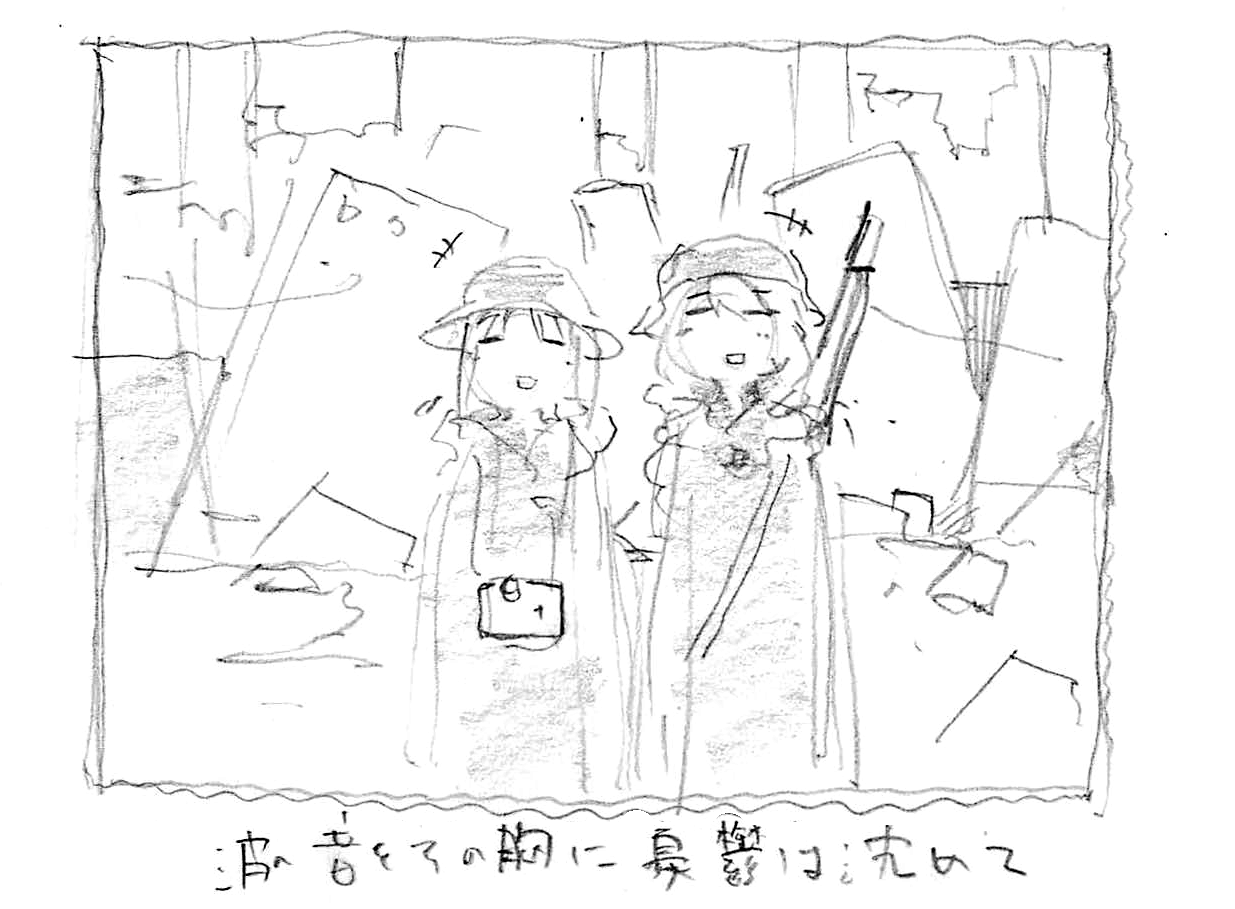 波の音をその胸に憂鬱は沈めて